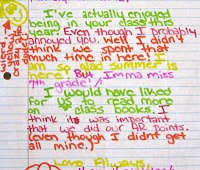 I've actually enjoyed
being in your class this
year! Even though I probably
annoyed you. Well I didn't
think we spent that
much time in here! I
am so glad summer is
here! But Imma miss
7th grade!
I would have liked
for us to read more
class books. I
think it's was important
that we did our AR points.
(even though I didn't get
all mine.)
Love Always,